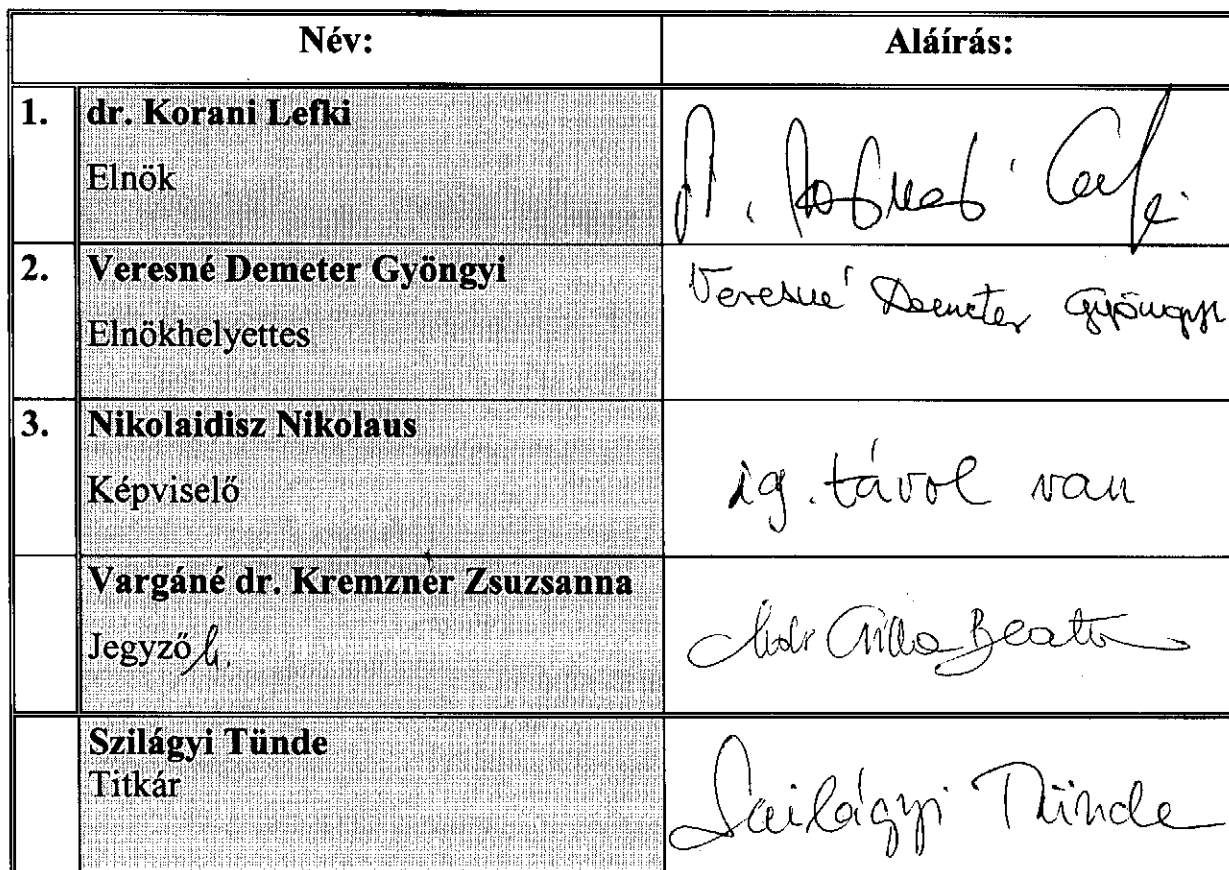 Név: Aláírás:
1. dr. Korani Lefki
Elnök
2. Veresné Demeter Gyöngyi Veresné Demeter Gyöngyi
Elnökhelyettes
3. Nikolaidisz Nikolaus
Képviselő ig. távol van
Vargáné dr. Kremznér Zsuzsanna
Jegyző h.
Szilágyi Tünde
Titkár Szilágyi Tünde